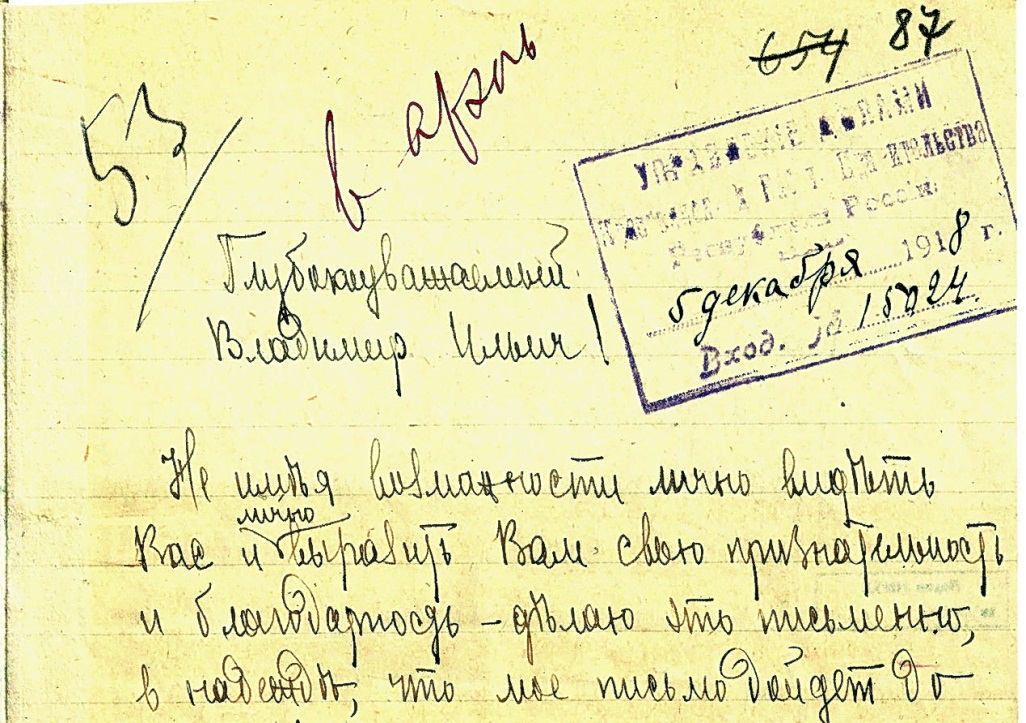 654 87
53
в архив
УПРАВЛЕНИЕ ДѢЛАМИ
Республики России.
5 декабря 1918 г.
Вход. № 15024
Глубокоуважаемый
Владимир Ильич!
Не имѣя возможности лично видѣть
лично
Вас и выразить Вам свою признательность
и благодарность – дѣлаю это письменно,
в надеждѣ, что мое письмо дойдет до